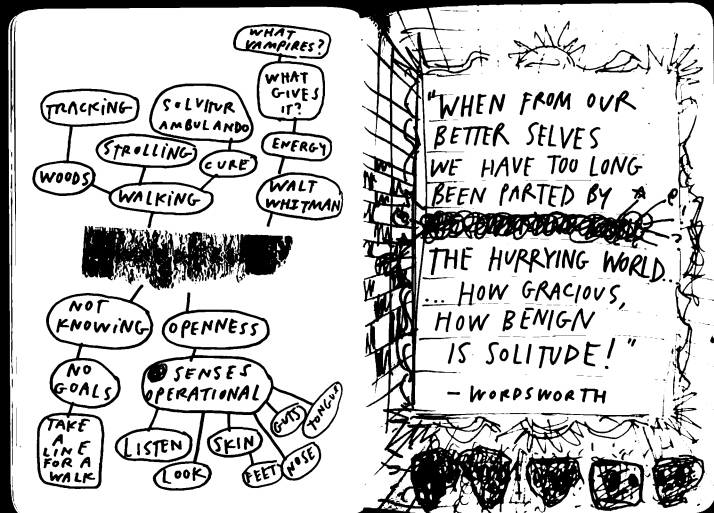 WHAT
VAMPIRES?
WHAT
GIVES
IT?
ENERGY
WALT
WHITMAN
TRACKING
SOLVITUR
AMBULANDO
STROLLING
CURE
WOODS
WALKING
NOT
KNOWING
OPENNESS
NO
GOALS
SENSES
OPERATIONAL
TAKE
A
LINE
FOR A
WALK
LISTEN
LOOK
SKIN
FEET
NOSE
GUTS
TONGUE
"WHEN FROM OUR
BETTER SELVES
WE HAVE TOO LONG
BEEN PARTED BY
THE HURRYING WORLD...
... HOW GRACIOUS,
HOW BENIGN
IS SOLITUDE!"
- WORDSWORTH